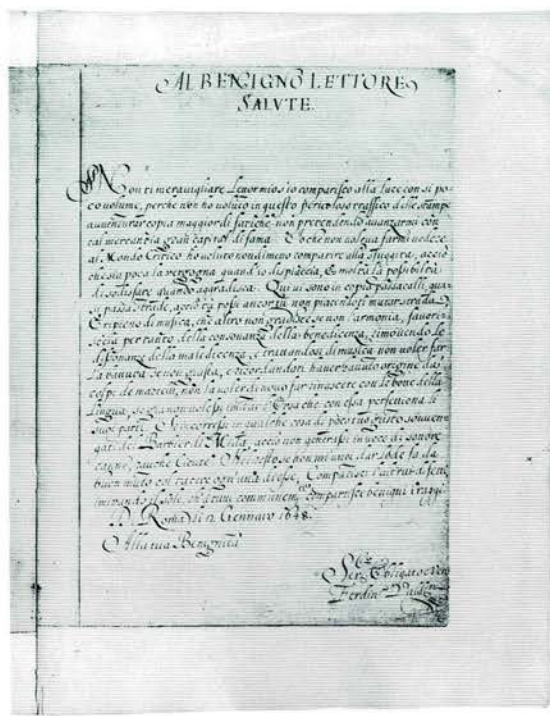 AL BENIGNO LETTORE
SALVTE.
Non ti meravigliare Lettor mio s'io comparisco alla luce con sì po-
co volume, perche non ho voluto in questo pericoloso traffico delle stampe
auuenturar copia maggior di fatiche non pretendendo auanzarmi con
tal mercantia gran capital di fama. E se che non voleua farmi vedere
al Mondo Critico ho voluto nondimeno comparire alla sfuggita, acciò
che sia poca la vergogna quand'io dispiaccia, e molta la possibiltà
di sodisfare quando aggradisca. Qui vi sono in copia passacalli, qua-
si passa strade, acciò tu possi ancor tù non piacendoti mutar strada
E ripieno di musica, che altro non gradisce se non l'armonia, favori-
scila per tanto della consonanza della benedicenza, rimovendo le
dissonanze della maledicenza, e trattandosi di musica non voler far
la battuta se non giusta, e ricordandoti hauer hauuto origine da
colpi de martelli, non la voler di nuouo far rinascere con le botte della
lingua, se già non volessi imitar l'Orsa che con essa perfettiona li
suoi parti. S'io corressi in qualche cosa di poco tuo gusto souuen-
gati del Barbier di Mida, acciò non generassi in voce di sonore
canne, rauche Cicale. Nel resto se non mi vuoi dar lode fa da
buon muto col tacere ogni mala di esse. Compatisci l'altrui difetti
imitando il sole, ch'a tutti communem.te compartisce benigni i raggi
Di Roma li 12 Gennaro 1648.
Alla tua Benignità
Ser.re Obligato e Vero
Ferdin.o Valdam.ni